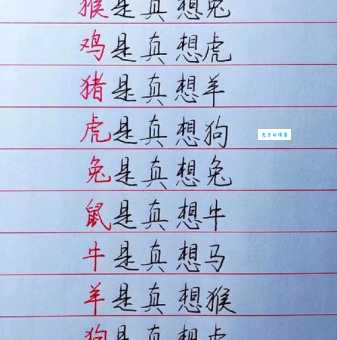 猴是真想兔
鸡是真想虎
猪是真想羊
虎是真想狗
兔是真想兔
鼠是真想牛
牛是真想马
羊是真想猴
狗是真想虎